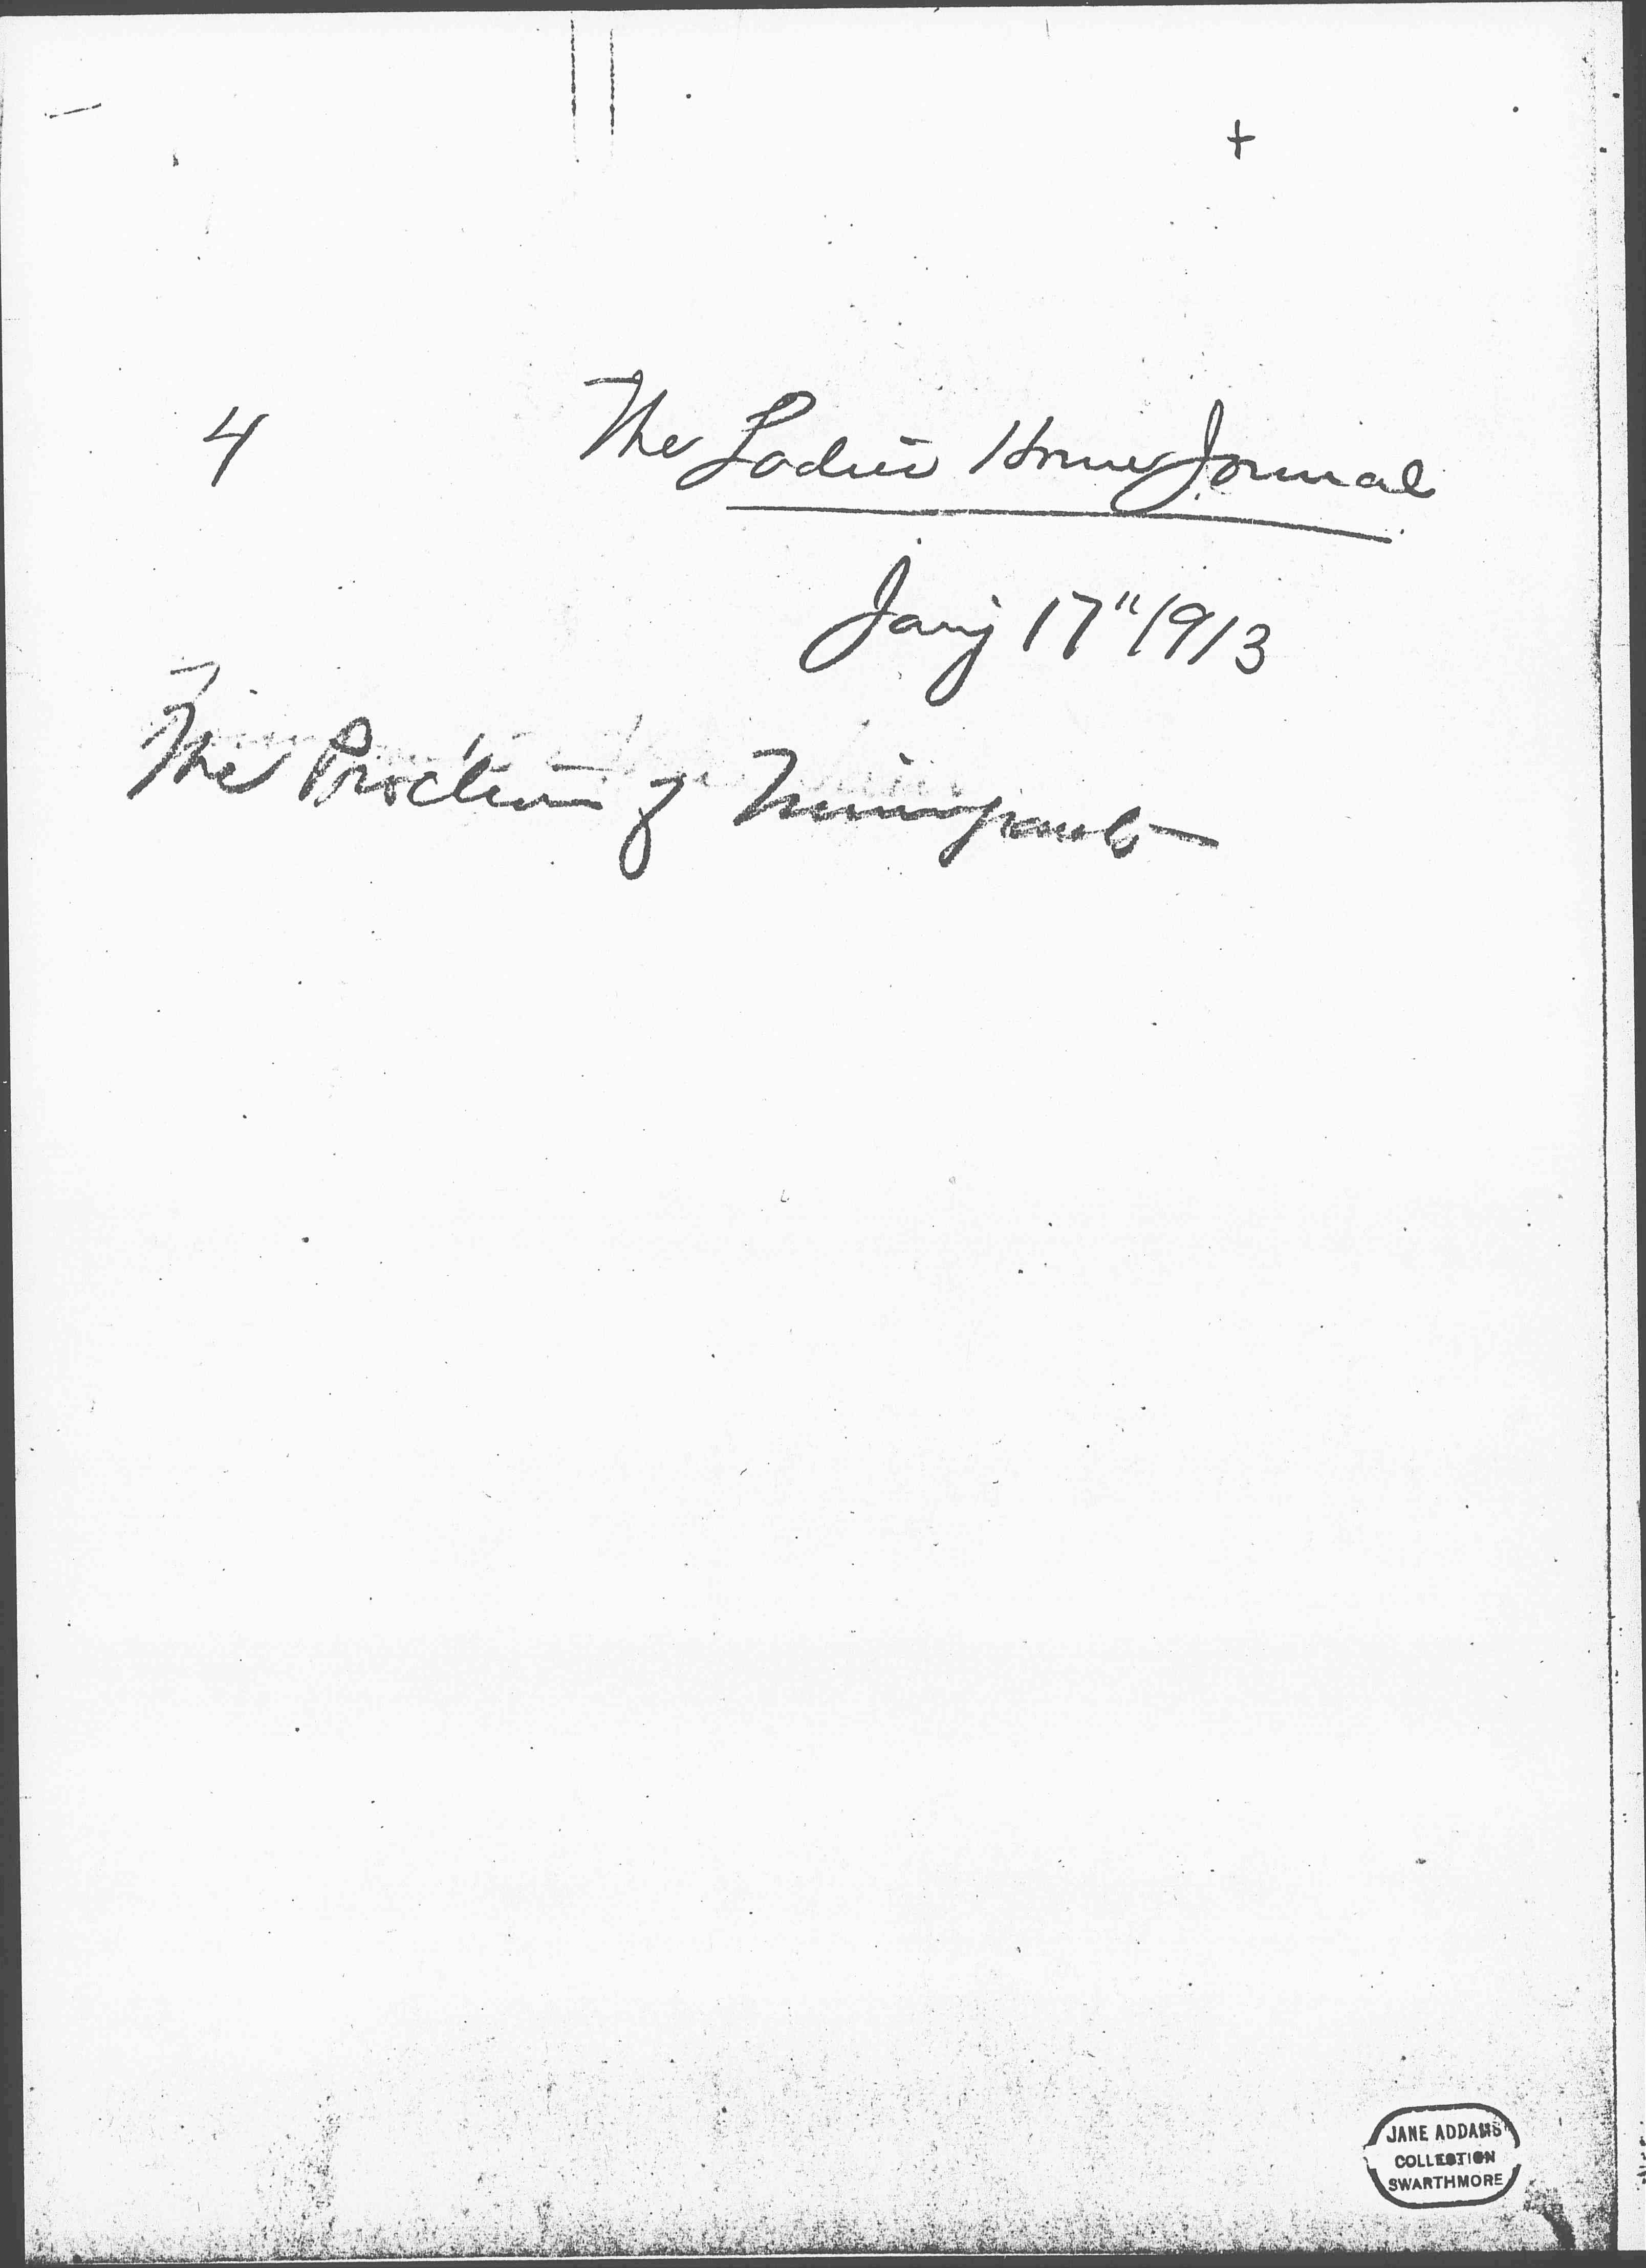 +
4 The Ladies Home Journal
Jan'y 17" 1913
The Protection of Immigrants
JANE ADDAMS
COLLECTION
SWARTHMORE